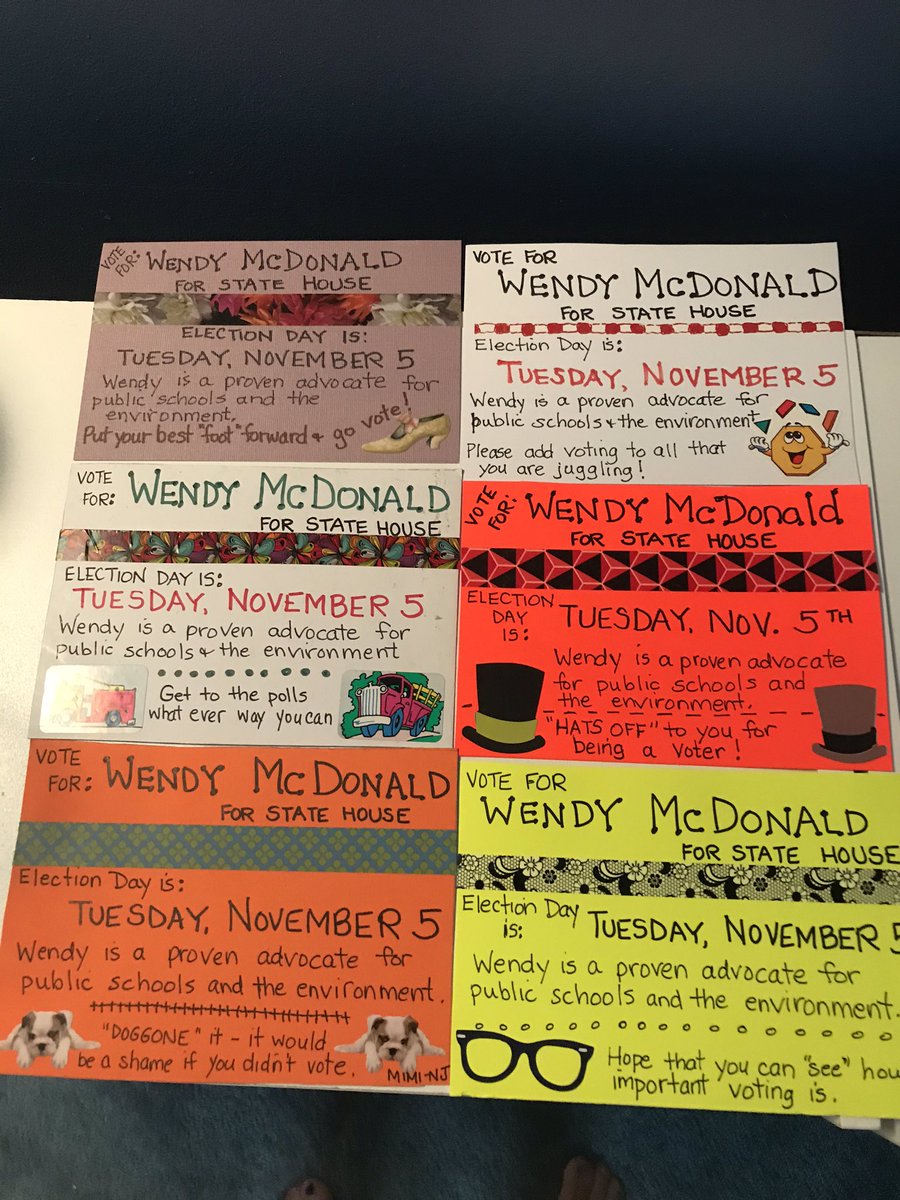 VOTE FOR: WENDY McDONALD
FOR STATE HOUSE
ELECTION DAY IS:
TUESDAY, NOVEMBER 5
Wendy is a proven advocate for
public schools and the
environment.
Put your best "foot" forward & go vote!
VOTE FOR
WENDY McDONALD
FOR STATE HOUSE
Election Day is:
TUESDAY, NOVEMBER 5
Wendy is a proven advocate for
public schools & the environment
Please add voting to all that
you are juggling!
VOTE FOR: WENDY McDONALD
FOR STATE HOUSE
ELECTION DAY IS:
TUESDAY, NOVEMBER 5
Wendy is a proven advocate for
public schools & the environment
Get to the polls
what ever way you can
VOTE FOR: WENDY McDonald
FOR STATE HOUSE
ELECTION DAY IS: TUESDAY, NOV. 5TH
Wendy is a proven advocate
for public schools and
the environment.
"HATS OFF" to you for
being a voter!
VOTE FOR: WENDY McDONALD
FOR STATE HOUSE
Election Day is:
TUESDAY, NOVEMBER 5
Wendy is a proven advocate for
public schools and the environment.
"DOGGONE" it - it would
be a shame if you didn't vote.
MIMI-NJ
VOTE FOR
WENDY McDONALD
FOR STATE HOUSE
Election Day is: TUESDAY, NOVEMBER 5
Wendy is a proven advocate for
public schools and the environment.
Hope that you can "see" how
important voting is.